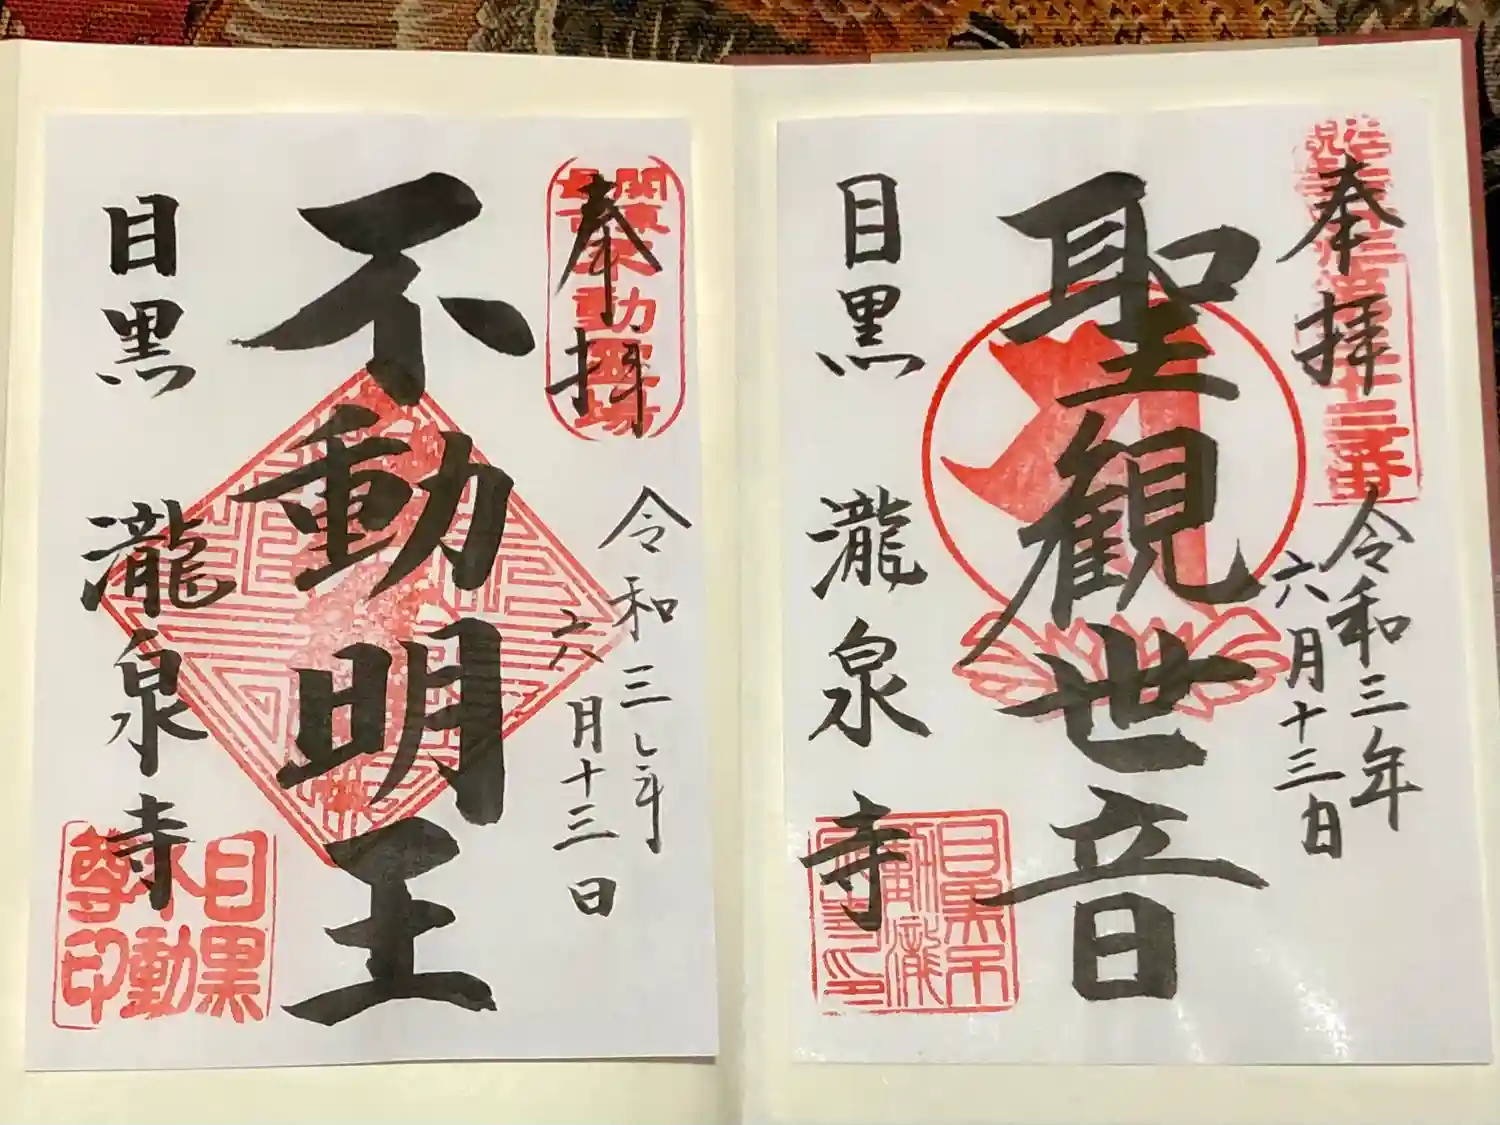 奉拝
聖観世音
令和三年
六月十三日
目黒 瀧泉寺
奉拝
関東
不動霊場
不動明王
令和三年
六月十三日
目黒 瀧泉寺
目黒
不動
尊印